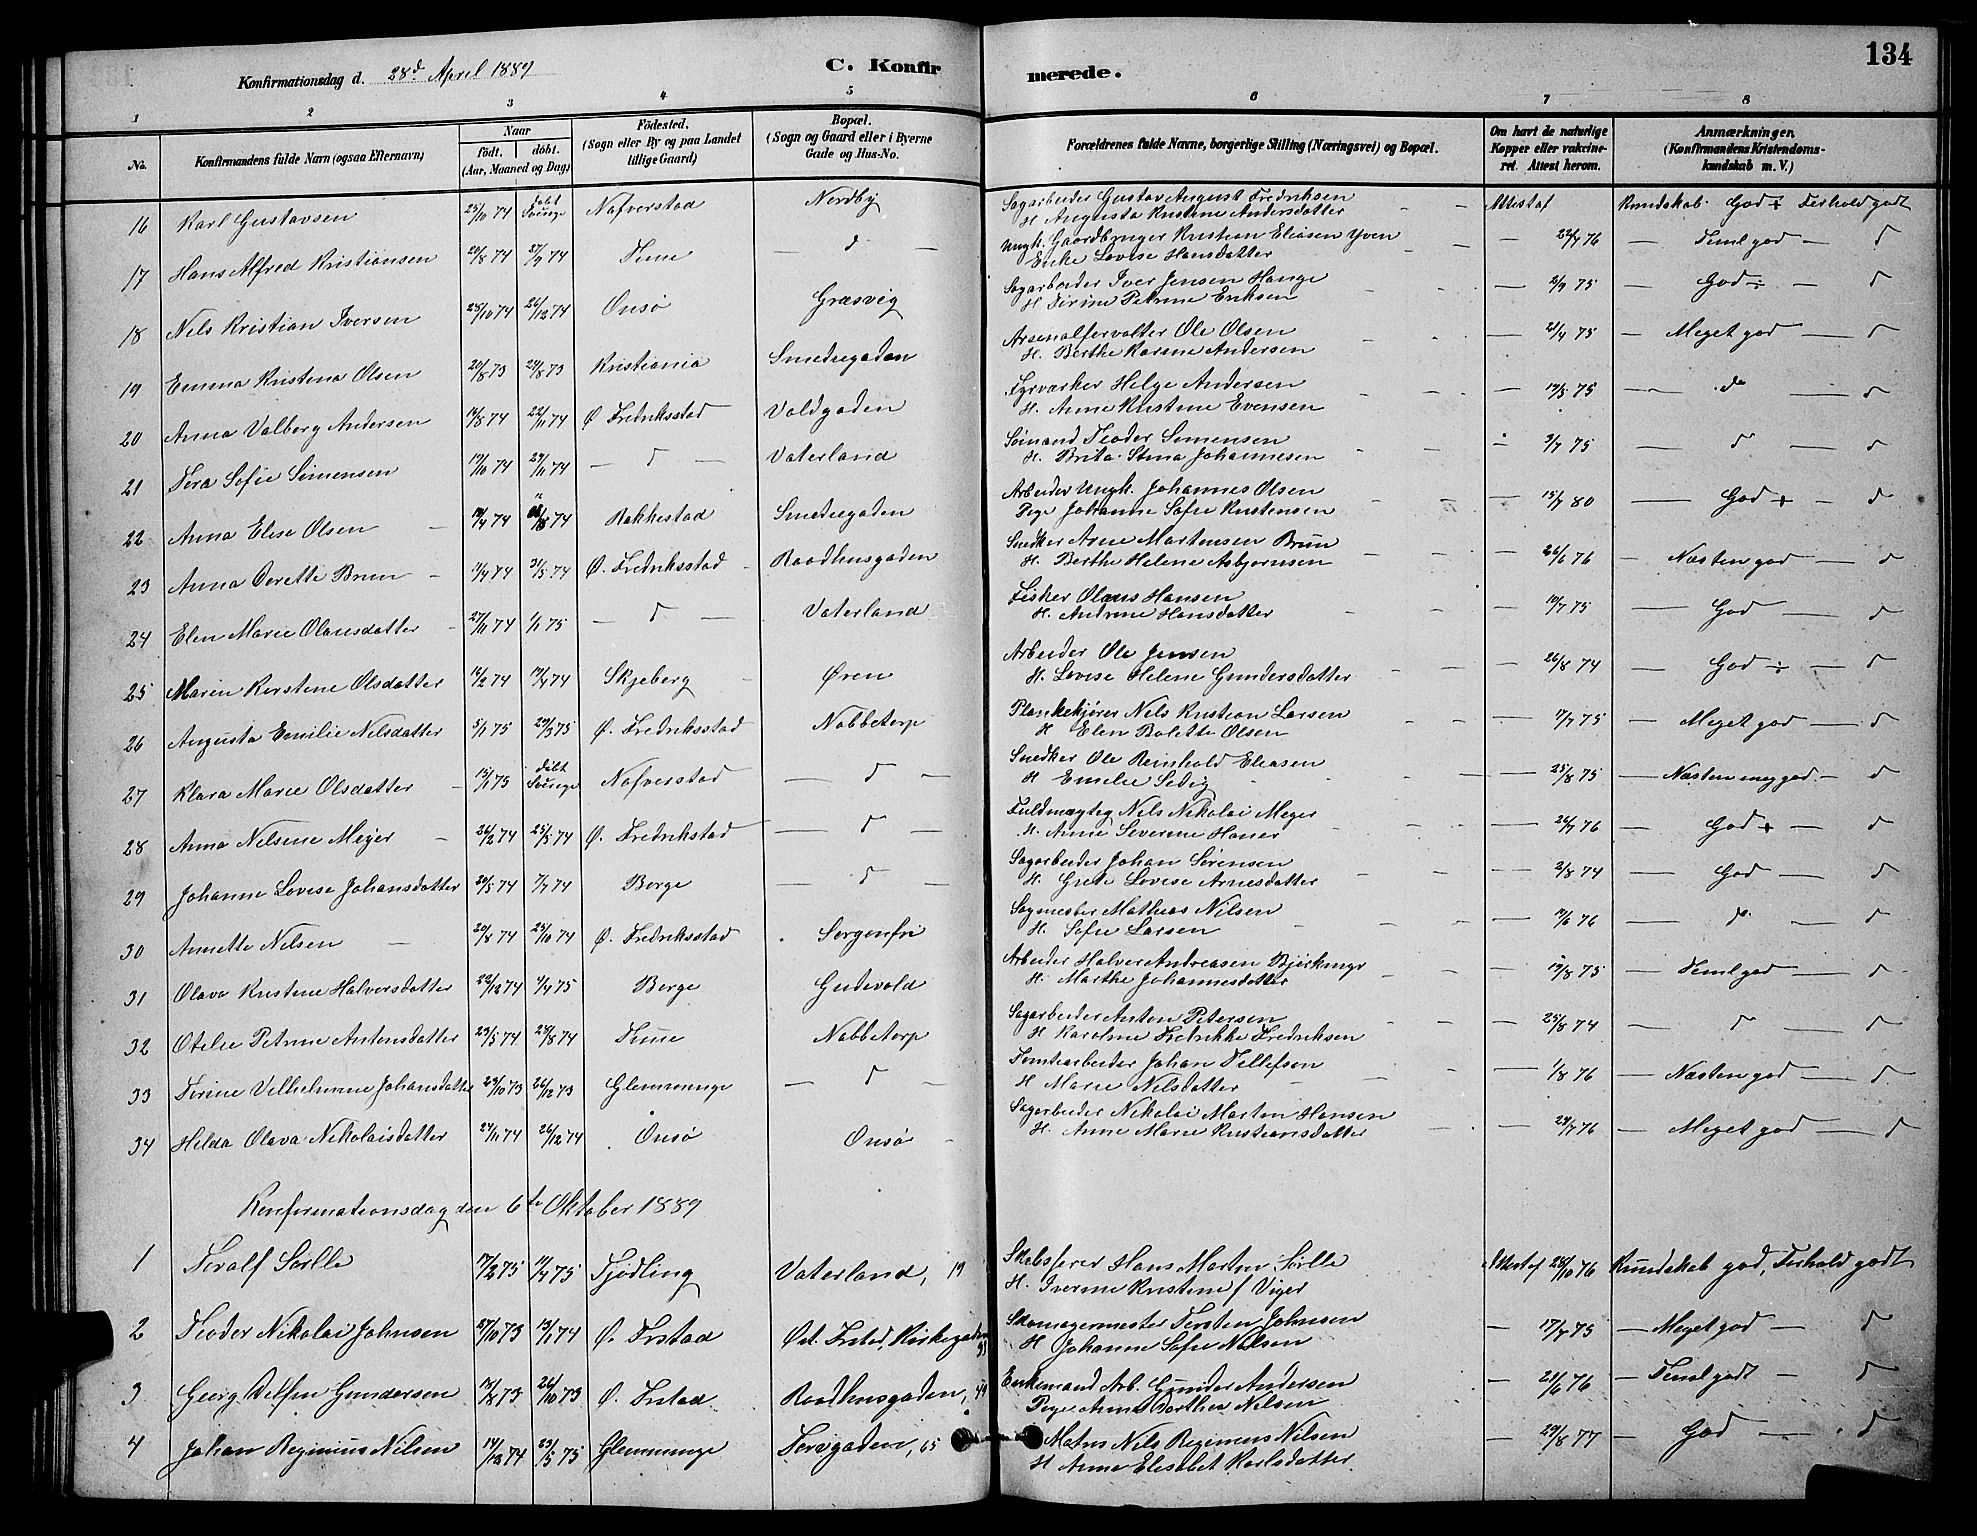 134
Konfirmationsdag d. 28d April 1889 C. Konfirmerede.
1 2 3 4 5 6 7 8
No. Konfirmandens fulde Navn (ogsaa Efternavn) Naar födt. döbt. (Aar, Maaned og Dag) Födested. (Sogn eller By og paa Landet tillige Gaard) Bopæl. (Sogn og Gaard eller i Byerne Gade og Hus-No. Forældrenes fulde Navne, borgerlige Stilling (Næringsvei) og Bopæl. Om havt de naturlige Kopper eller vakcineret. Attest herom. Anmærkninger. (Konfirmandens Kristendomskundskab m. V.)
16 Karl Gustavsen 25/10 74 döbt Sverige Nafverstad Nordby Sagarbeider Gustav August Fredriksen Attest af Kundskab God + Forhold godt
H. Augusta Kristine Andersdatter
17 Hans Alfred Kristiansen 22/8 74 27/9 74 Tune — d — Ungk. Gaardbruger Kristian Eliasen Yven — 22/7 76 — Teml god — d
Enke Lovise Hansdatter
18 Nels Kristian Iversen 28/10 74 26/12 74 Onsø Græsvig Sagarbeider Iver Jensen Hauge — 2/9 75 — God ÷ — d
H. Petrine Eriksen
19 Emma Kristina Olsen 20/8 73 24/8 73 Kristiania Smedjegaden Arsenalforvalter Ole Olsen — 21/4 75 — Meget god — d
H. Berthe Karine Andersen
20 Anna Valborg Andersen 14/8 74 22/11 74 Ø. Fredriksstad Voldgaden Fyrvarker Helge Andersen — 19/5 75 — do — d
H. Anne Kristine Evensen
21 Tora Sofie Simensen 19/10 74 29/11 74 — d — Vaterland Sömand Teodor Simensen — 3/7 75 — d — d
H. Brita Stina Johannesen
22 Anna Elise Olsen 74 74 Rakkestad Smedjegaden Arbeider Ungk. Johannes Olsen — 15/7 80 — God + — d
Pige Johanne Sofie Kristensen
23 Anna Oorette Brun 74 31/5 74 Ø. Fredriksstad Raadhusgaden Snedker Arne Martensen Brun — 26/6 76 — Næsten god — d
H. Berthe Helene Asbjørnsen
24 Elen Marie Olausdatter 27/11 74 1/1 75 — d — Vaterland Fisker Olaus Hansen — 19/7 75 — God — d
H. Andrine Hansdatter
25 Maren Kirstine Olsdatter 16/2 74 19/4 74 Skjeberg Øren Arbeider Ole Jensen — 26/8 74 — God ÷ — d
H. Lovise Helene Gundersdatter
26 Augusta Emilie Nilsdatter 5/1 75 29/3 75 Ø. Fredriksstad Nabbetorp Plankekjører Nels Kristian Larsen — 17/7 75 — Meget god — d
H Elen Bolette Olsen
27 Klara Marie Olsdatter 15/1 73 döbt Sverige Nafverstad — d — Snedker Ole Reinhold Eliasen — 25/8 75 — Næsten meg god — d
H Emilie Sedig
28 Anna Nilsine Meyer 26/2 74 25/5 74 Ø. Fredrikstad — d — Fuldmægtig Nils Nikolai Meyer — 24/7 76 — God + — d
H. Anne Severine
29 Johanne Lovise Johansdatter 20/5 74 7/7 74 Borge — d — Sagarbeider Johan Sørensen — 2/8 74 — God — d
H. Grete Lovise Arnesdatter
30 Annette Nilsen 20/8 74 25/10 74 Ø. Fredriksstad Sorgenfri Sagmester Mathias Nilsen — 19/6 76 — do — d
H. Sofie Larsen
31 Olava Kristine Halvorsdatter 22/12 74 4/4 75 Borge Gudevold Arbeider Halvor Andreasen Bjørkmyr — 19/8 75 — Teml god — d
H. Marthe Johannesdatter
32 Otelie Petrine Antonsdatter 29/5 74 28/8 74 Tune Nabbetorp Sagarbeider Anton Petersen — 25/8 74 — d — d
H Karoline Fredrikke Fredriksen
33 Torine Vilhelmine Johansdatter 29/10 73 26/12 73 Glemminge — d — Tomtearbeider Johan Tellefsen — 1/8 76 — Næsten god — d.
H Marie Nilsdatter
34 Hilda Olava Nikolaisdatter 27/11 74 26/12 74 Onsø Onsø Sagarbeider Nikolai Marten Hansen — 28/7 76 — Meget god — d
H. Anne Marie Kristiansdatter
Konfirmationsdag den 6te Oktober 1889
1 Toralf Sørlle 17/2 75 11/4 75 Tjödling Vaterland, 19 Skibsfører Hans Martin Sørlle Attest af 28/10 76 Kundskab god, Forhold godt
H. Iverine Kristine f Viger
2 Teodor Nikolai Johnsen 27/10 73 13/1 74 Ø. Frstad Øst. Frstad, Kirkegaden 95 Skomagermester Torsten Johnsen — 17/7 75 — Meget god — d
H Johanne Sofie Nilsen
3 Georg Delfin Gundersen 18/8 73 26/10 73 Ø. Frstad Raadhusgaden, 49 Enkemand Arb. Gunder Andersen — 21/6 76 — Teml godt — d
Pige Anne Dorthea Nilsen
4 Johan Reginius Nilsen 14/12 74 23/5 75 Glemminge Torvgaden, 65 Matros Nils Reginius Nilsen — 29/8 77 — God — d
H Anne Elisabet Karlsdatter